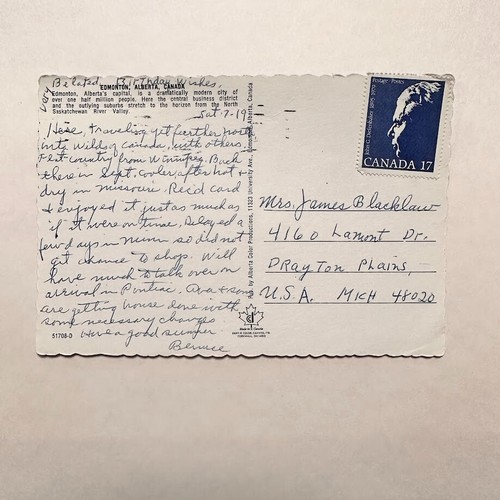 Very Belated Birthday Wishes,
EDMONTON, ALBERTA, CANADA
Edmonton, Alberta's capital, is a dramatically modern city of
over one half million people. Here the central business district
and the outlying suburbs stretch to the horizon from the North
Saskatchewan River Valley.
Sat. 7-19
Here, traveling yet further north
into wilds of Canada, with others
Flat country from Winnipeg. Back
there in Sept. Cooler after hot &
dry in Missouri. Rec'd card
& enjoyed it just as much as
if it were on time. Delayed a
few days in so did not
get chance to shop. Will
have much to talk over on
arrival in Pontiac. & song
are getting house done with
some necessary changes
Have a good summer
Bernice
51708-D
Pub by Alberta Color Productions, 11303 University Ave., Edmonton, Alberta, Canada
Made in Canada
Postage Postes
John G. Diefenbaker 1895-1979
CANADA 17
Mrs. James Blacklaw
4160 Lamont Dr.
Drayton Plains,
U.S.A. Mich 48020